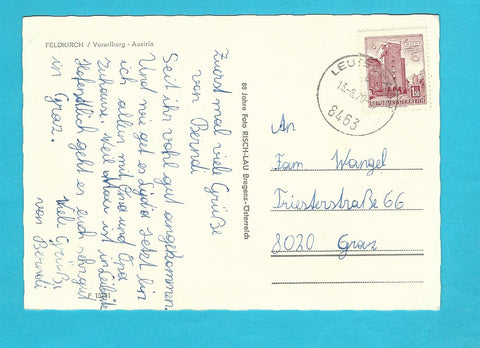 FELDKIRCH / Vorarlberg - Austria
Zuerst mal viele Grüße
von Berndi
Seit ihr wohl gut angekommen.
Und wie get es Lydia Jetzt bin
ich allein mit Oma und Opa
Zuhause. Weil Mau ist in Leibnitz
Hofendlich geht es euch sehr gut
in Graz.
Viele Grüße
von Berndi
80 Jahre Foto RISCH-LAU Bregenz-Österreich
8463
REPUBLIK ÖSTERREICH
An
Fam Wangel
Triesterstraße 66
8020 Graz